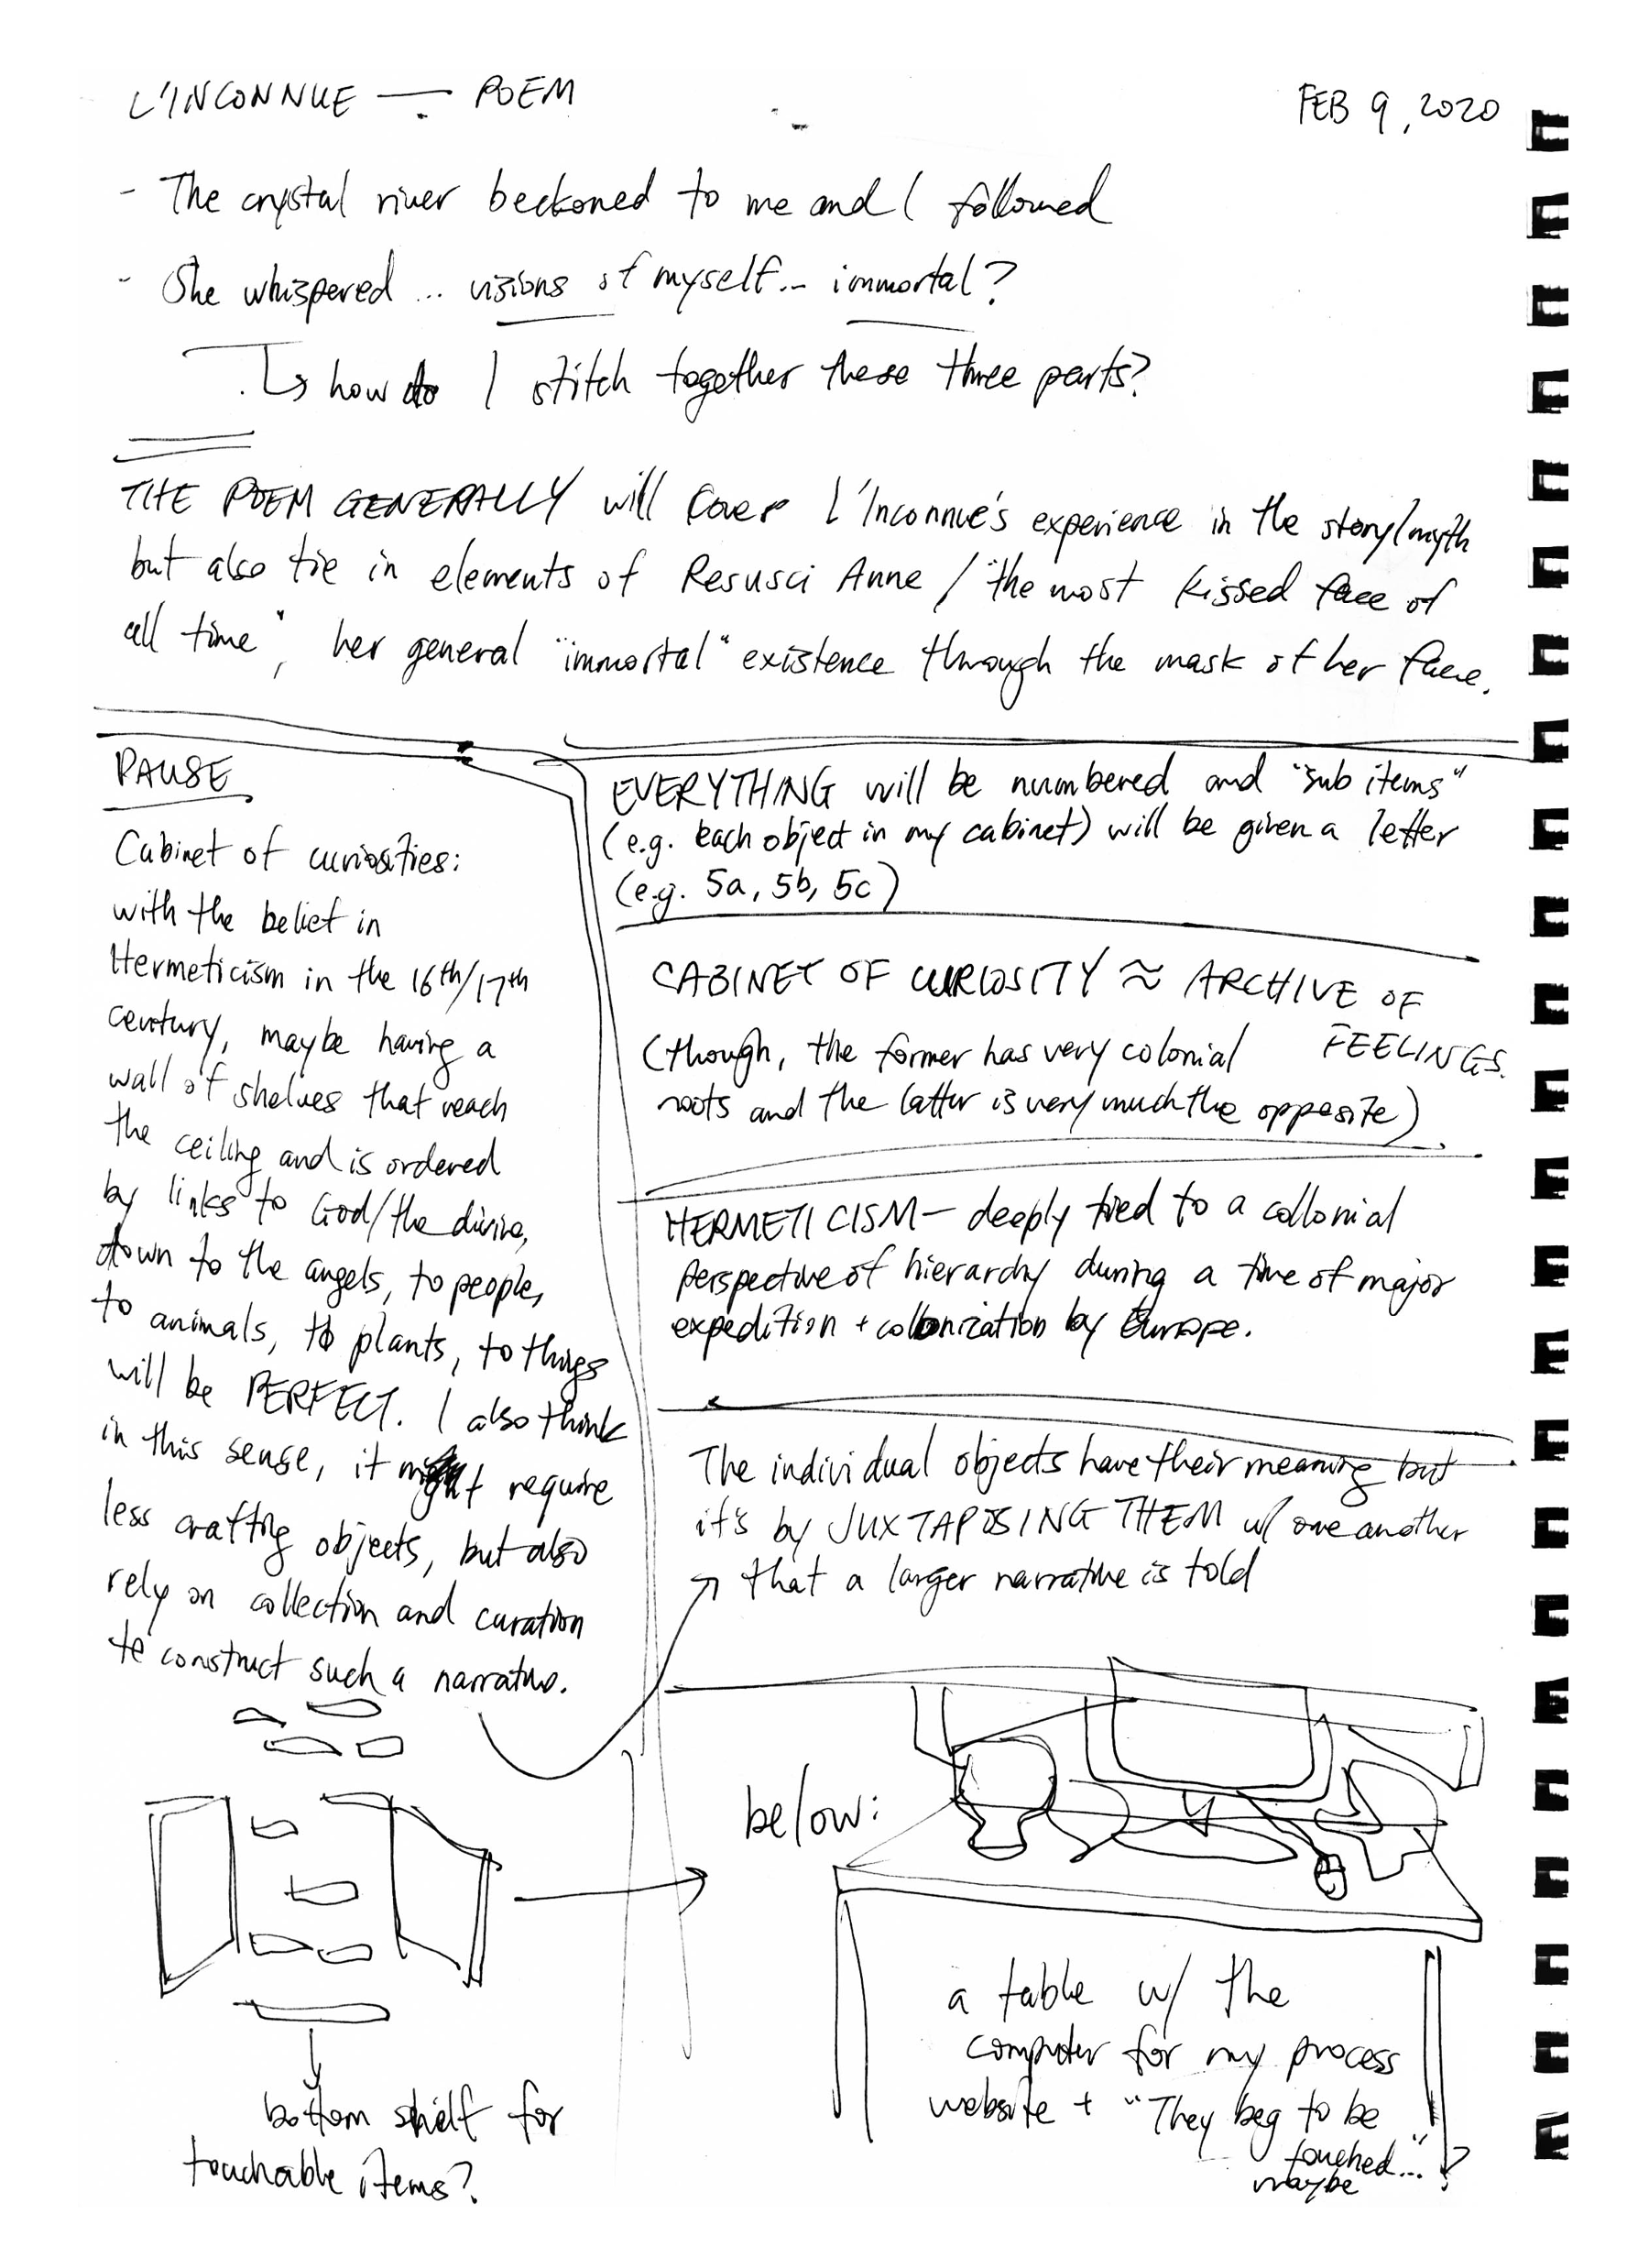 L'INCONNUE — POEM
FEB 9, 2020
- The crystal river beckoned to me and I followed
- She whispered ... visions of myself... immortal?
↳ how do I stitch together these three parts?
THE POEM GENERALLY will cover L'Inconnue's experience in the story/myth
but also tie in elements of Resusci Anne / "the most kissed face of
all time", her general "immortal" existence through the mask of her face.
PAUSE
Cabinet of curiosities:
with the belief in
Hermeticism in the 16th/17th
century, maybe having a
wall of shelves that reach
the ceiling and is ordered
by links to God/the divine,
down to the angels, to people,
to animals, to plants, to things
will be PERFECT. I also think
in this sense, it might require
less crafting objects, but also
rely on collection and curation
to construct such a narrative.
bottom shelf for
touchable items?
EVERYTHING will be numbered and "sub items"
(e.g. each object in my cabinet) will be given a letter
(e.g. 5a, 5b, 5c)
CABINET OF CURIOSITY ≈ ARCHIVE OF
FEELINGS.
(though, the former has very colonial
roots and the latter is very much the opposite)
HERMETICISM — deeply tied to a collonial
perspective of hierarchy during a time of major
expedition + colonization by Europe.
The individual objects have their meaning but
it's by JUXTAPOSING THEM w/ one another
that a larger narrative is told
below:
a table w/ the
computer for my process
website + "They beg to be
touched..." ?
maybe